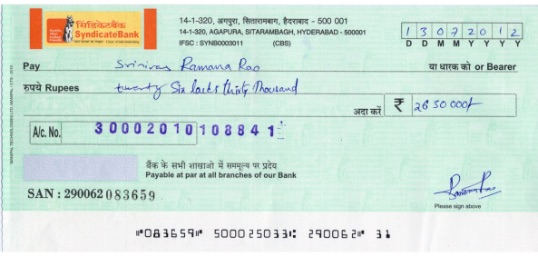 सिंडिकेटबैंक
SyndicateBank
14-1-320, अगपुरा, सितारामबाग, हैदराबाद - 500 001
14-1-320, AGAPURA, SITARAMBAGH, HYDERABAD - 500001
IFSC : SYNB0003011 (CBS)
13072012
D D M M Y Y Y Y
Pay Srinivas Ramana Rao या धारक को or Bearer
रुपये Rupees twenty Six lacks thirty Thousand
अदा करें ₹ 26 30 000/-
A/c. No. 30002010108841
बैंक के सभी शाखाओं में सममूल्य पर प्रदेय
Payable at par at all branches of our Bank
SAN : 290062 083659
Please sign above
⑈083659⑈ 500025033⑆ 290062⑈ 31